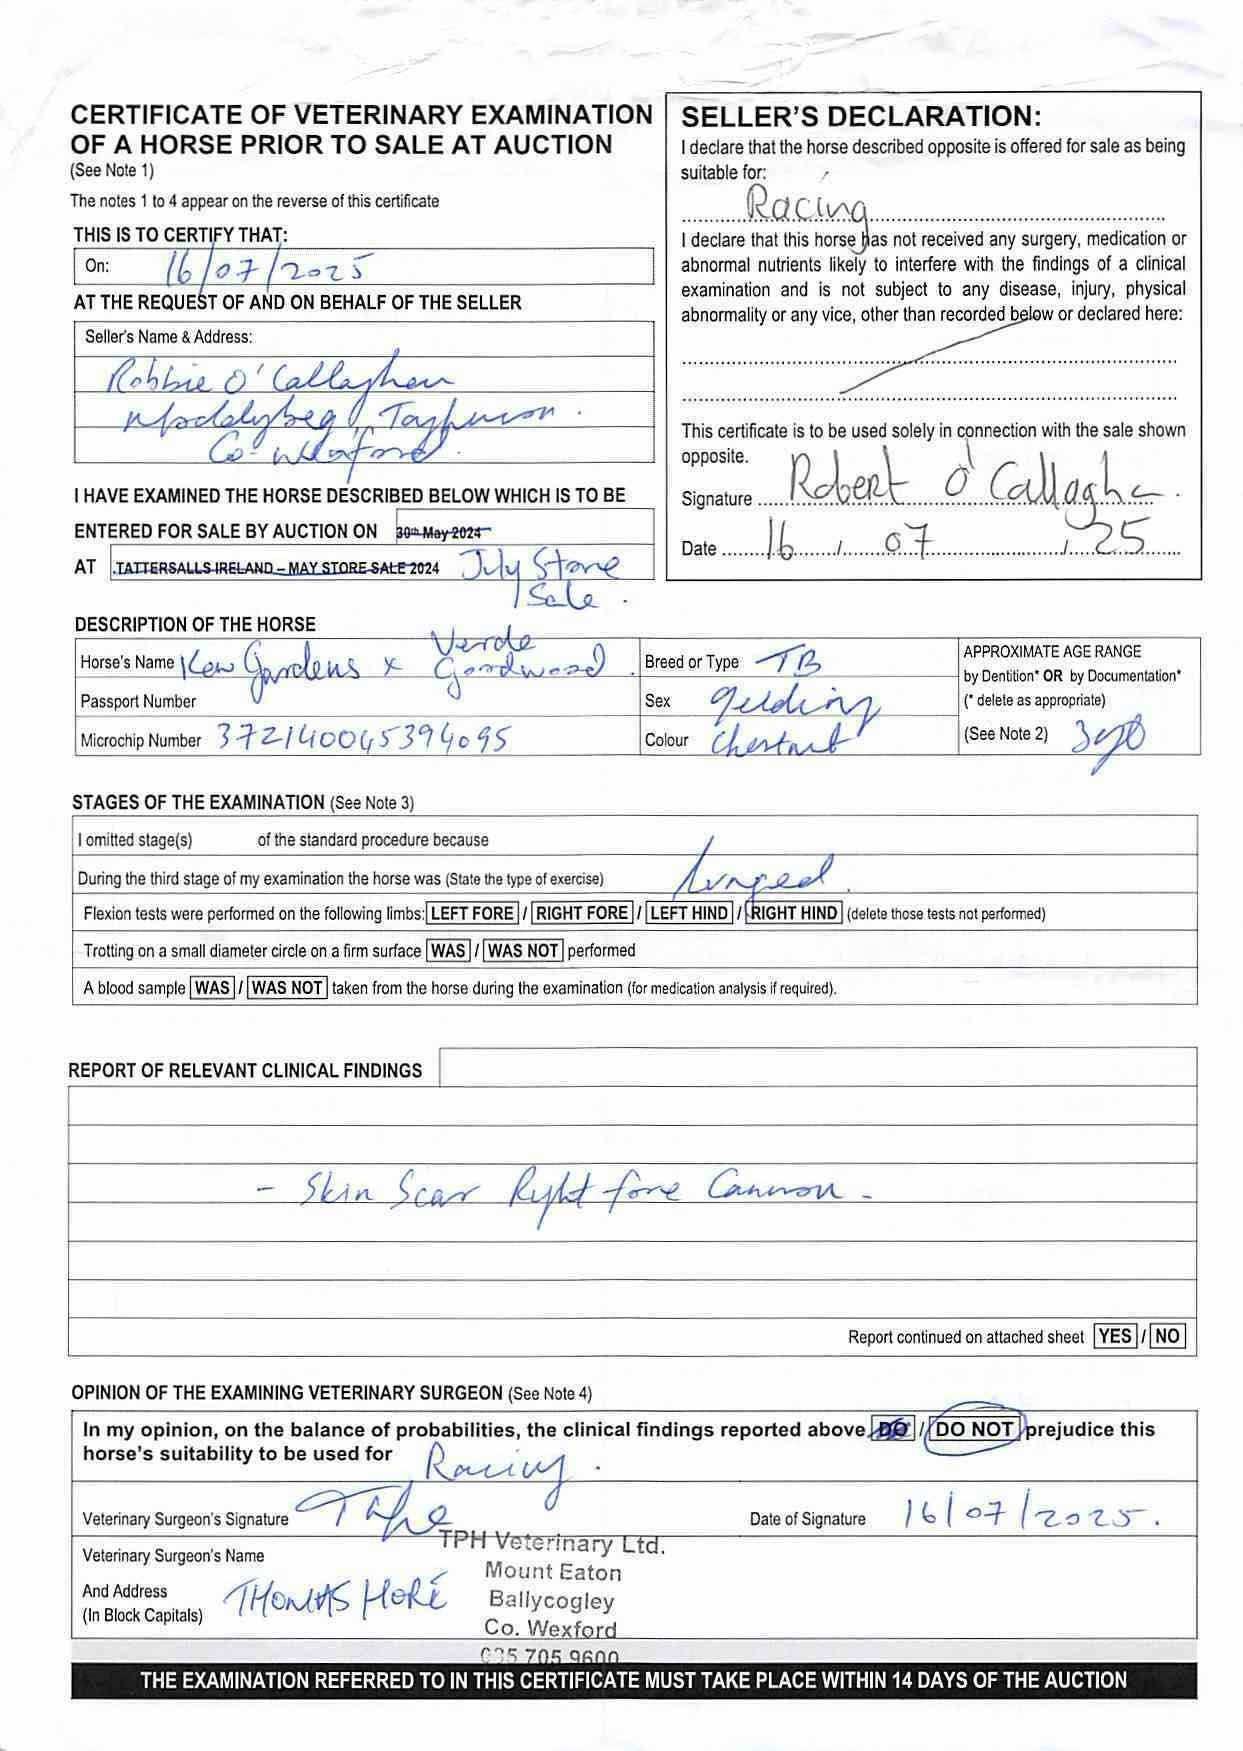 CERTIFICATE OF VETERINARY EXAMINATION
OF A HORSE PRIOR TO SALE AT AUCTION
(See Note 1)
The notes 1 to 4 appear on the reverse of this certificate
THIS IS TO CERTIFY THAT:
On: 16/07/2025
AT THE REQUEST OF AND ON BEHALF OF THE SELLER
Seller's Name & Address:
Robbie O'Callaghan
Co. Wexford.
I HAVE EXAMINED THE HORSE DESCRIBED BELOW WHICH IS TO BE
ENTERED FOR SALE BY AUCTION ON 30th May 2024
AT TATTERSALLS IRELAND – MAY STORE SALE 2024 July Store
Sale.
SELLER'S DECLARATION:
I declare that the horse described opposite is offered for sale as being
suitable for:
Racing
I declare that this horse has not received any surgery, medication or
abnormal nutrients likely to interfere with the findings of a clinical
examination and is not subject to any disease, injury, physical
abnormality or any vice, other than recorded below or declared here:
This certificate is to be used solely in connection with the sale shown
opposite.
Signature Robert O'Callaghan
Date 16 / 07 / 25
DESCRIPTION OF THE HORSE
Horse's Name Kew Gardens x Verde Goodwood.
Breed or Type TB
APPROXIMATE AGE RANGE
by Dentition* OR by Documentation*
(* delete as appropriate)
(See Note 2) 3yo
Passport Number
Sex gelding
Microchip Number 372140045394095
Colour Chestnut
STAGES OF THE EXAMINATION (See Note 3)
I omitted stage(s) of the standard procedure because
During the third stage of my examination the horse was (State the type of exercise) lunged.
Flexion tests were performed on the following limbs: LEFT FORE / RIGHT FORE / LEFT HIND / RIGHT HIND (delete those tests not performed)
Trotting on a small diameter circle on a firm surface WAS / WAS NOT performed
A blood sample WAS / WAS NOT taken from the horse during the examination (for medication analysis if required).
REPORT OF RELEVANT CLINICAL FINDINGS
- Skin Scar Right fore Cannon -
Report continued on attached sheet YES / NO
OPINION OF THE EXAMINING VETERINARY SURGEON (See Note 4)
In my opinion, on the balance of probabilities, the clinical findings reported above DO / DO NOT prejudice this
horse's suitability to be used for Racing.
Veterinary Surgeon's Signature
Date of Signature 16/07/2025.
Veterinary Surgeon's Name
And Address
(In Block Capitals) THOMAS HORÉ
TPH Veterinary Ltd.
Mount Eaton
Ballycogley
Co. Wexford
085 705 9600
THE EXAMINATION REFERRED TO IN THIS CERTIFICATE MUST TAKE PLACE WITHIN 14 DAYS OF THE AUCTION